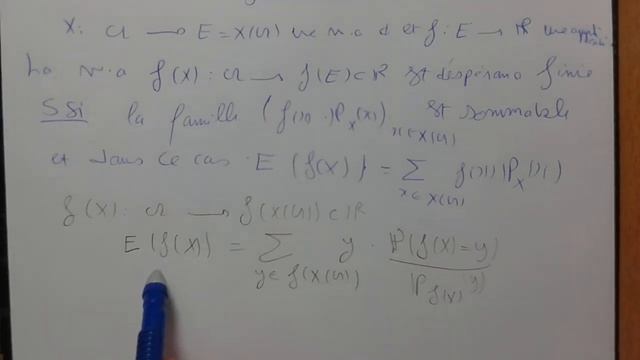 X: Ω → E = X(Ω) une v.a d et f: E → ℝ une appli
La v.a f(X): Ω → f(E) ⊂ ℝ est d'espérance finie
SSi la famille (f(x).ℙ_X(x))_{x∈X(Ω)} est sommable
et dans ce cas E(f(X)) = Σ_{x∈X(Ω)} f(x) ℙ_X(x)
f(X): Ω → f(X(Ω)) ⊂ ℝ
E(f(X)) = Σ_{y∈f(X(Ω))} y . ℙ(f(X)=y)
ℙ_{f(X)}(y)